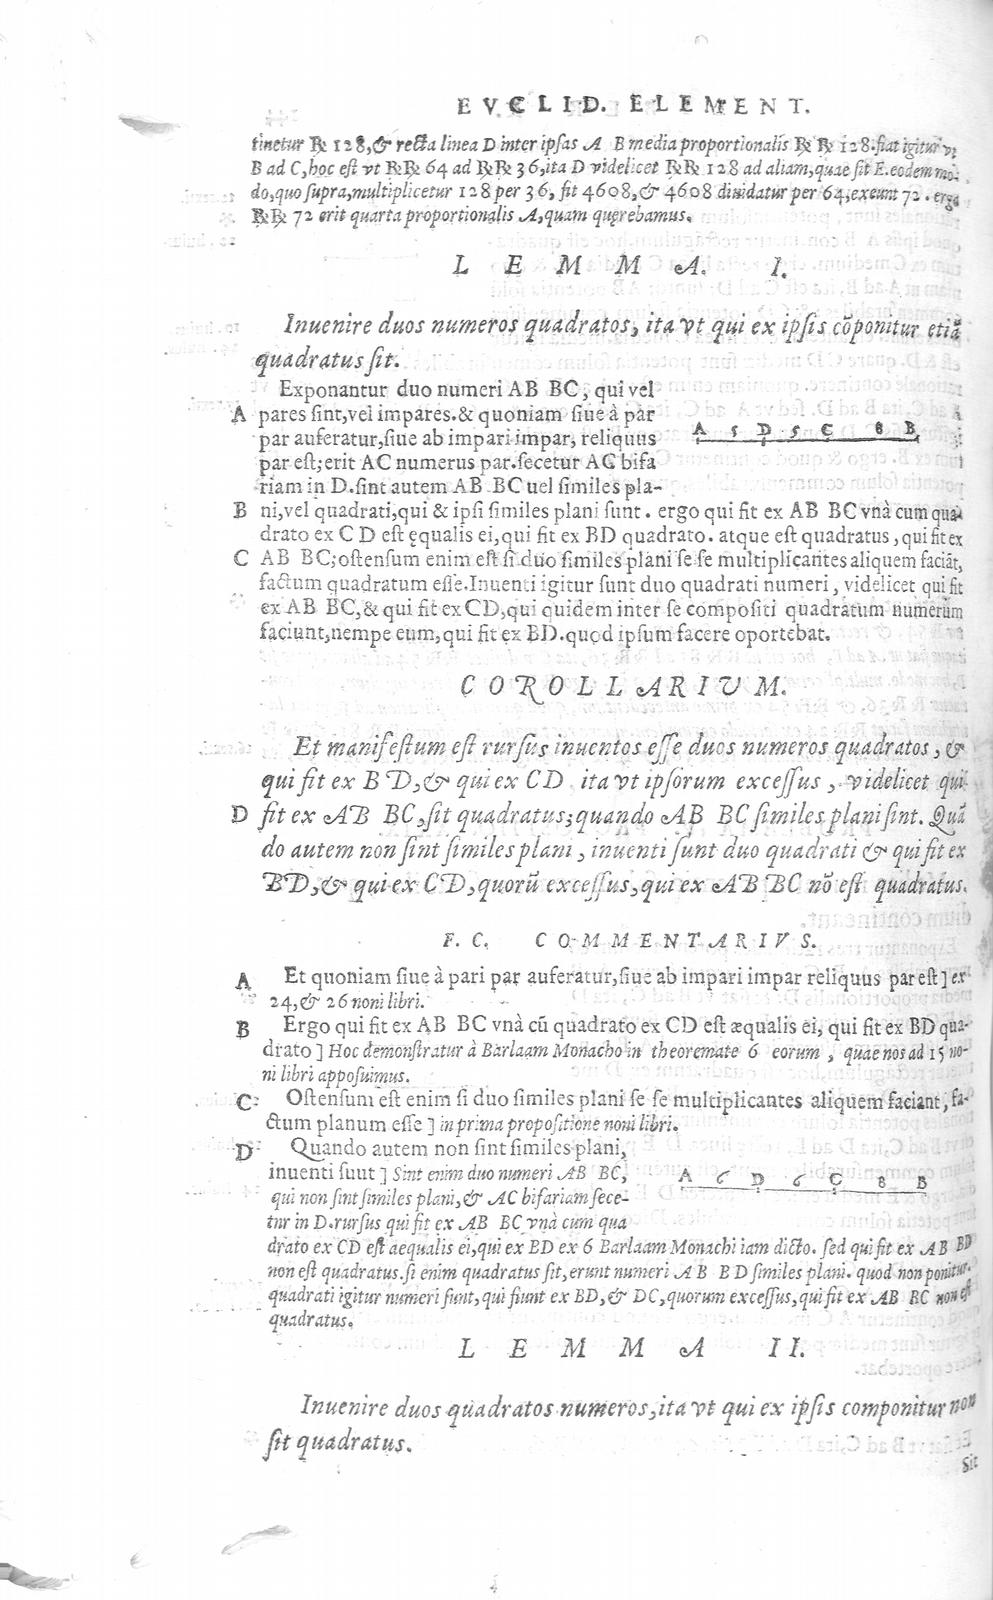 EVCLID. ELEMENT.
tinetur ℞ 128, & recta linea D inter ipsas A B media proportionalis ℞ ℞ 128. fiat igitur vt
B ad C, hoc est vt ℞℞ 64 ad ℞℞ 36, ita D videlicet ℞℞ 128 ad aliam, quae sit E. eodem mo-
do, quo supra, multiplicetur 128 per 36, fit 4608, & 4608 diuidatur per 64, exeunt 72. ergo
℞℞ 72 erit quarta proportionalis A, quam quęrebamus.
LEMMA. I.
Inuenire duos numeros quadratos, ita vt qui ex ipsis cōponitur etiā
quadratus sit.
Exponantur duo numeri AB BC, qui vel
A pares sint, vel impares. & quoniam siue à par
par auferatur, siue ab impari impar, reliquus
par est; erit AC numerus par. secetur AC bifa
riam in D. sint autem AB BC uel similes pla-
A 5 D 5 C 8 B
B ni, vel quadrati, qui & ipsi similes plani sunt. ergo qui fit ex AB BC vnà cum qua-
drato ex CD est ęqualis ei, qui fit ex BD quadrato. atque est quadratus, qui fit ex
C AB BC; ostensum enim est si duo similes plani se se multiplicantes aliquem faciāt,
factum quadratum esse. Inuenti igitur sunt duo quadrati numeri, videlicet qui fit
ex AB BC, & qui fit ex CD, qui quidem inter se compositi quadratum numerum
faciunt, nempe eum, qui fit ex BD. quod ipsum facere oportebat.
COROLLARIUM.
Et manifestum est rursus inuentos esse duos numeros quadratos, &
qui fit ex BD, & qui ex CD ita vt ipsorum excessus, videlicet qui
D fit ex AB BC, sit quadratus; quando AB BC similes plani sint. Quā
do autem non sint similes plani, inuenti sunt duo quadrati & qui fit ex
BD, & qui ex CD, quorū excessus, qui ex AB BC nō est quadratus.
F. C. COMMENTARIVS.
A Et quoniam siue à pari par auferatur, siue ab impari impar reliquus par est] ex
24, & 26 noni libri.
B Ergo qui fit ex AB BC vnà cū quadrato ex CD est æqualis ei, qui fit ex BD qua-
drato] Hoc demonstratur à Barlaam Monacho in theoremate 6 eorum, quae nos ad 15 no-
ni libri apposuimus.
C Ostensum est enim si duo similes plani se se multiplicantes aliquem faciant, fa-
ctum planum esse] in prima propositione noni libri.
D Quando autem non sint similes plani,
inuenti sunt] Sint enim duo numeri AB BC,
qui non sint similes plani, & AC bifariam sece-
tur in D. rursus qui fit ex AB BC vnà cum qua
A 6 D 6 C 8 B
drato ex CD est aequalis ei, qui ex BD ex 6 Barlaam Monachi iam dicto. sed qui fit ex AB BD
non est quadratus. si enim quadratus sit, erunt numeri AB BD similes plani. quod non ponitur.
quadrati igitur numeri sunt, qui fiunt ex BD, & DC, quorum excessus, qui fit ex AB BC non est
quadratus.
LEMMA II.
Inuenire duos quadratos numeros, ita vt qui ex ipsis componitur non
sit quadratus.
Sit